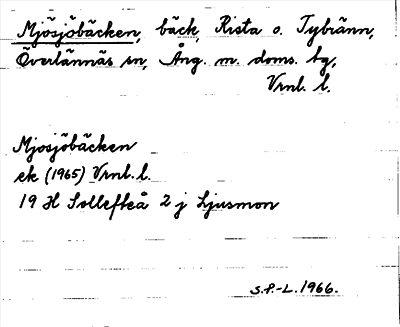 Mjösjöbäcken, bäck, Rista o. Tybränn,
Överlännäs sn, Ång. m. doms. tg,
Vrnl. l.
Mjosjöbäcken
ek (1965) Vrnl. l.
19 H Sollefteå 2 j Ljusmon
S.P.-L. 1966.